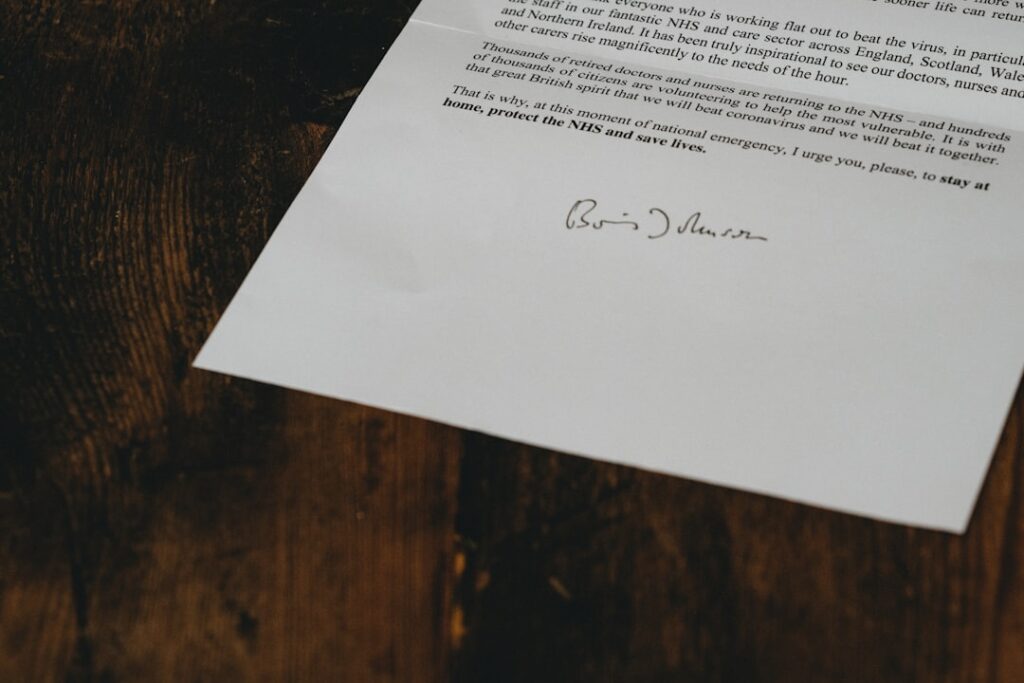 sooner life can return
everyone who is working flat out to beat the virus, in particular
the staff in our fantastic NHS and care sector across England, Scotland, Wales
and Northern Ireland. It has been truly inspirational to see our doctors, nurses and
other carers rise magnificently to the needs of the hour.
Thousands of retired doctors and nurses are returning to the NHS – and hundreds
of thousands of citizens are volunteering to help the most vulnerable. It is with
that great British spirit that we will beat coronavirus and we will beat it together.
That is why, at this moment of national emergency, I urge you, please, to stay at
home, protect the NHS and save lives.
Boris Johnson